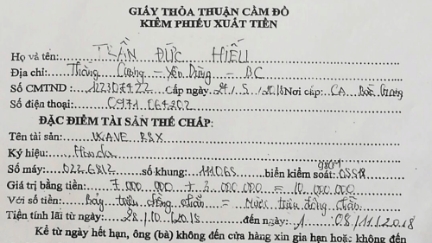 GIẤY THỎA THUẬN CẦM ĐỒ
KIÊM PHIẾU XUẤT TIỀN
Họ và tên: TRẦN ĐỨC HIẾU
Địa chỉ: Thường Cường - Yên Dũng - BC
Số CMTND: cấp ngày Nơi cấp: CA Bắc Giang
Số điện thoại:
ĐẶC ĐIỂM TÀI SẢN THẾ CHẤP:
Tên tài sản: WAVE RSX
Ký hiệu: Honda
Số máy: 0226812 số khung: 111065 biển kiểm soát:
Giá trị bằng tiền: 7.000.000 + 3.000.000 = 10.000.000
Với số tiền: Bảy triệu đồng chẵn = Mười triệu đồng chẵn
Tiền tính lãi từ ngày: 28/10/2018 đến ngày: 08/11/2018
Kể từ ngày hết hạn, ông (bà) không đến cửa hàng xin gia hạn hoặc không đến